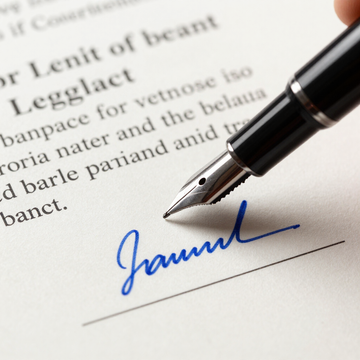 s if
or Lenit of beant
Legglact
banpace for vetnose iso
roria nater and the belaua
d barle pariand anid tre
banct.